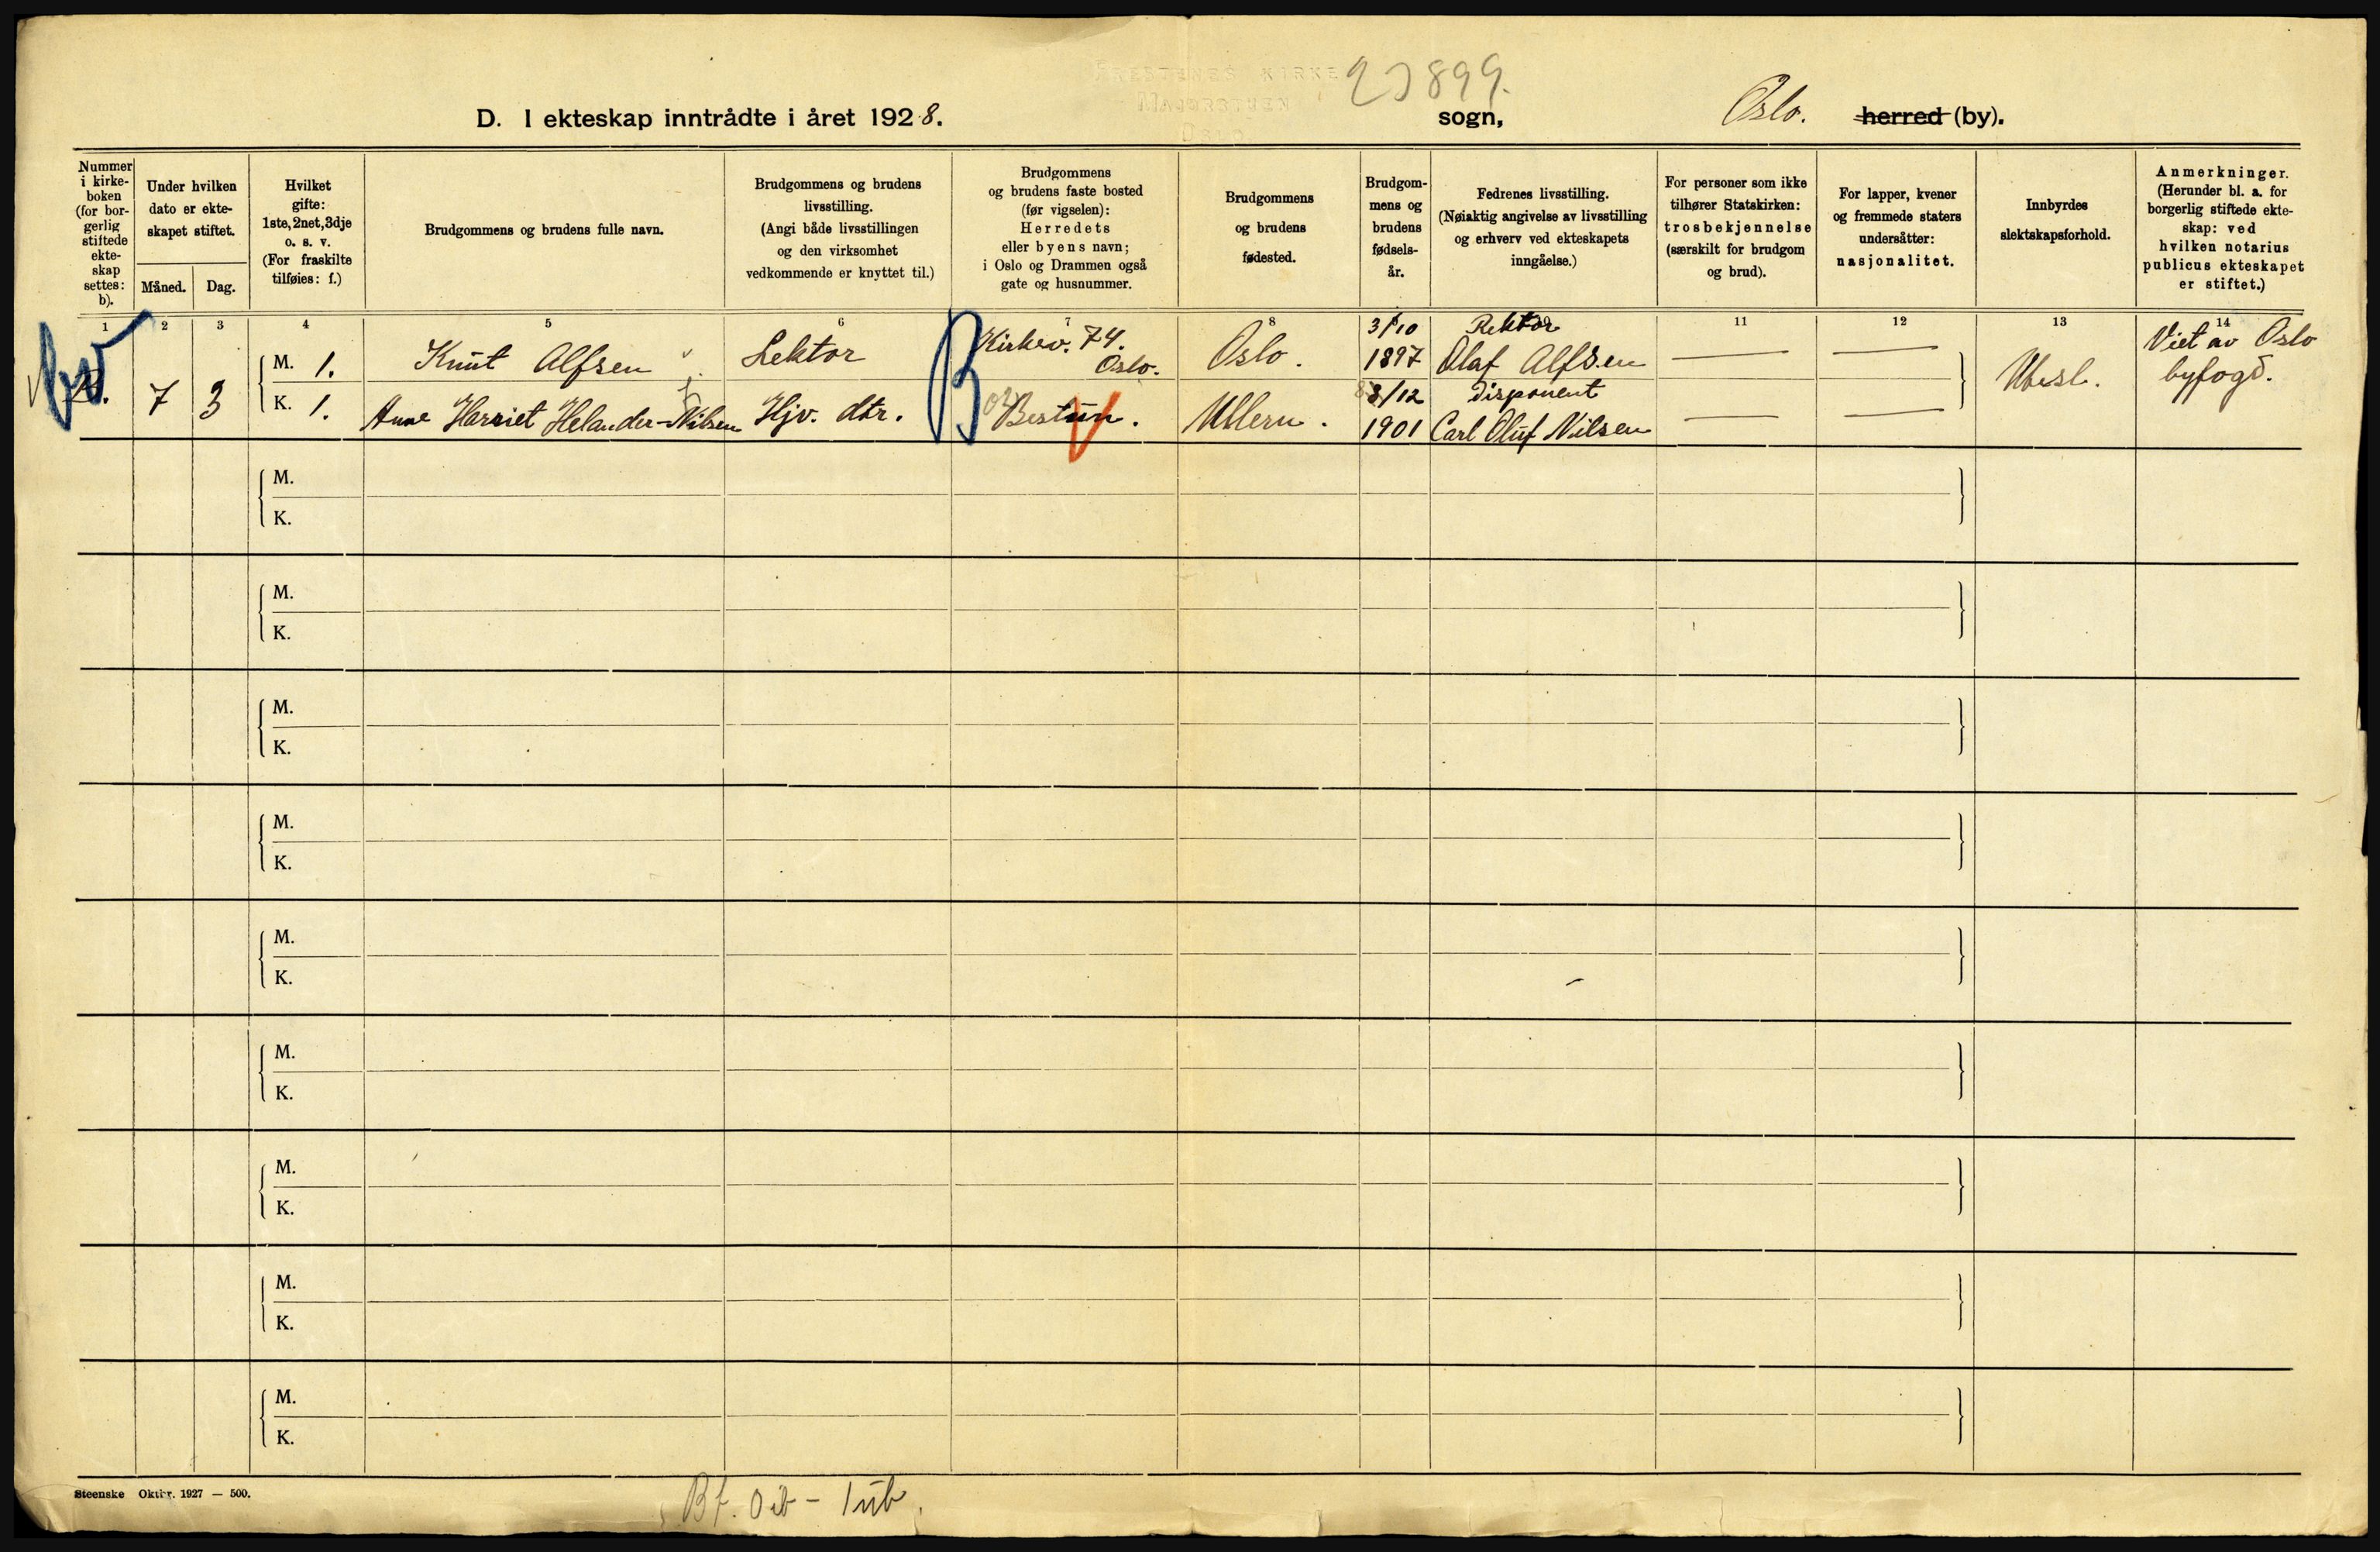 FRESTENES KIRKE
MAJORSTUEN
OSLO
23899.
D. I ekteskap inntrådte i året 1928. sogn, Oslo. herred (by).
Nummer
i kirke-
boken
(for bor-
gerlig
stiftede
ekte-
skap
settes:
b).
Under hvilken
dato er ekte-
skapet stiftet.
Måned. Dag.
Hvilket
gifte:
1ste, 2net, 3dje
o. s. v.
(For fraskilte
tilføies: f.)
Brudgommens og brudens fulle navn.
Brudgommens og brudens
livsstilling.
(Angi både livsstillingen
og den virksomhet
vedkommende er knyttet til.)
Brudgommens
og brudens faste bosted
(før vigselen):
Herredets
eller byens navn;
i Oslo og Drammen også
gate og husnummer.
Brudgommens
og brudens
fødested.
Brudgom-
mens og
brudens
fødsels-
år.
Fedrenes livsstilling.
(Nøiaktig angivelse av livsstilling
og erhverv ved ekteskapets
inngåelse.)
For personer som ikke
tilhører Statskirken:
trosbekjennelse
(særskilt for brudgom
og brud).
For lapper, kvener
og fremmede staters
undersåtter:
nasjonalitet.
Innbyrdes
slektskapsforhold.
Anmerkninger.
(Herunder bl. a. for
borgerlig stiftede ekte-
skap: ved
hvilken notarius
publicus ekteskapet
er stiftet.)
1 2 3 4 5 6 7 8 11 12 13 14
7 3
M. 1. Knut Alfsen Lektor Kirkev. 74. Oslo. Oslo. 3/10 1897 Rektor Olaf Alfsen — —
K. 1. Anne Harriet Helander-Nilsen Hjv. dtr. B Bestun. Ullern. 8/12 1901 Disponent Carl Oluf Nilsen — —
Ubesl.
Viet av Oslo
byfogd.
M.
K.
M.
K.
M.
K.
M.
K.
M.
K.
M.
K.
M.
K.
M.
K.
M.
K.
Steenske Oktbr. 1927 — 500.
Bf. 0 ib - 1 ub.